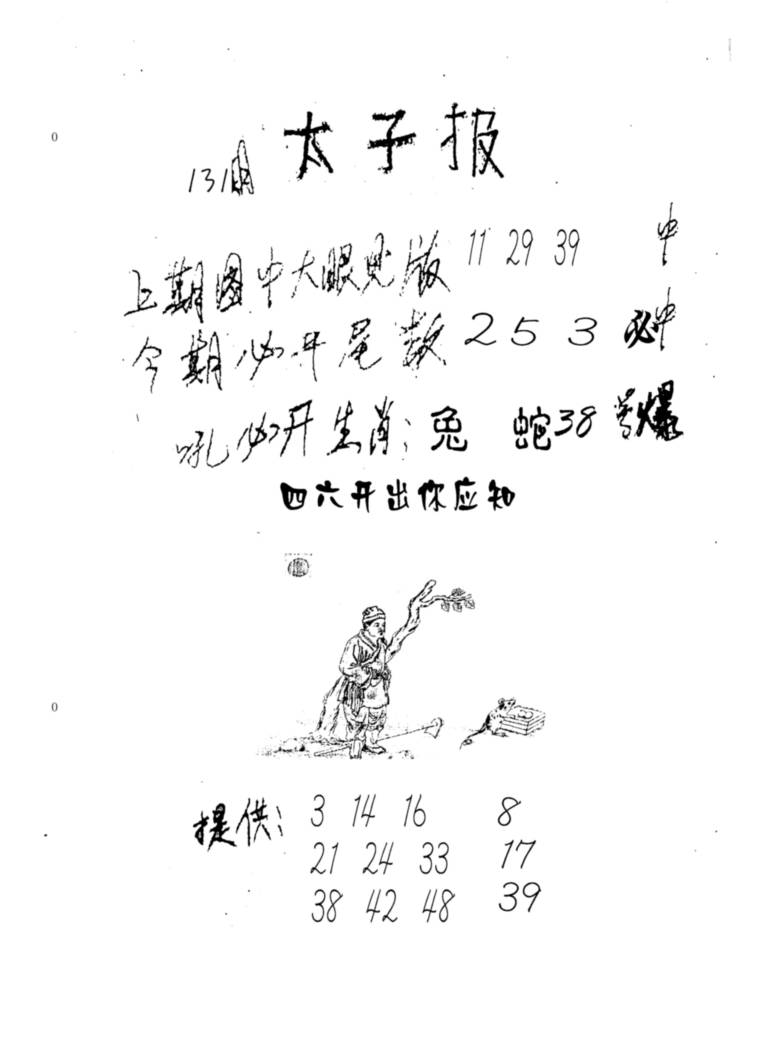 0
太子报
131期
上期图中大眼见版 11 29 39 中
今期必开尾数 2 5 3 必中
吼必开生肖：兔 蛇38号爆
四六开出你应知
0
提供：3 14 16 8
21 24 33 17
38 42 48 39